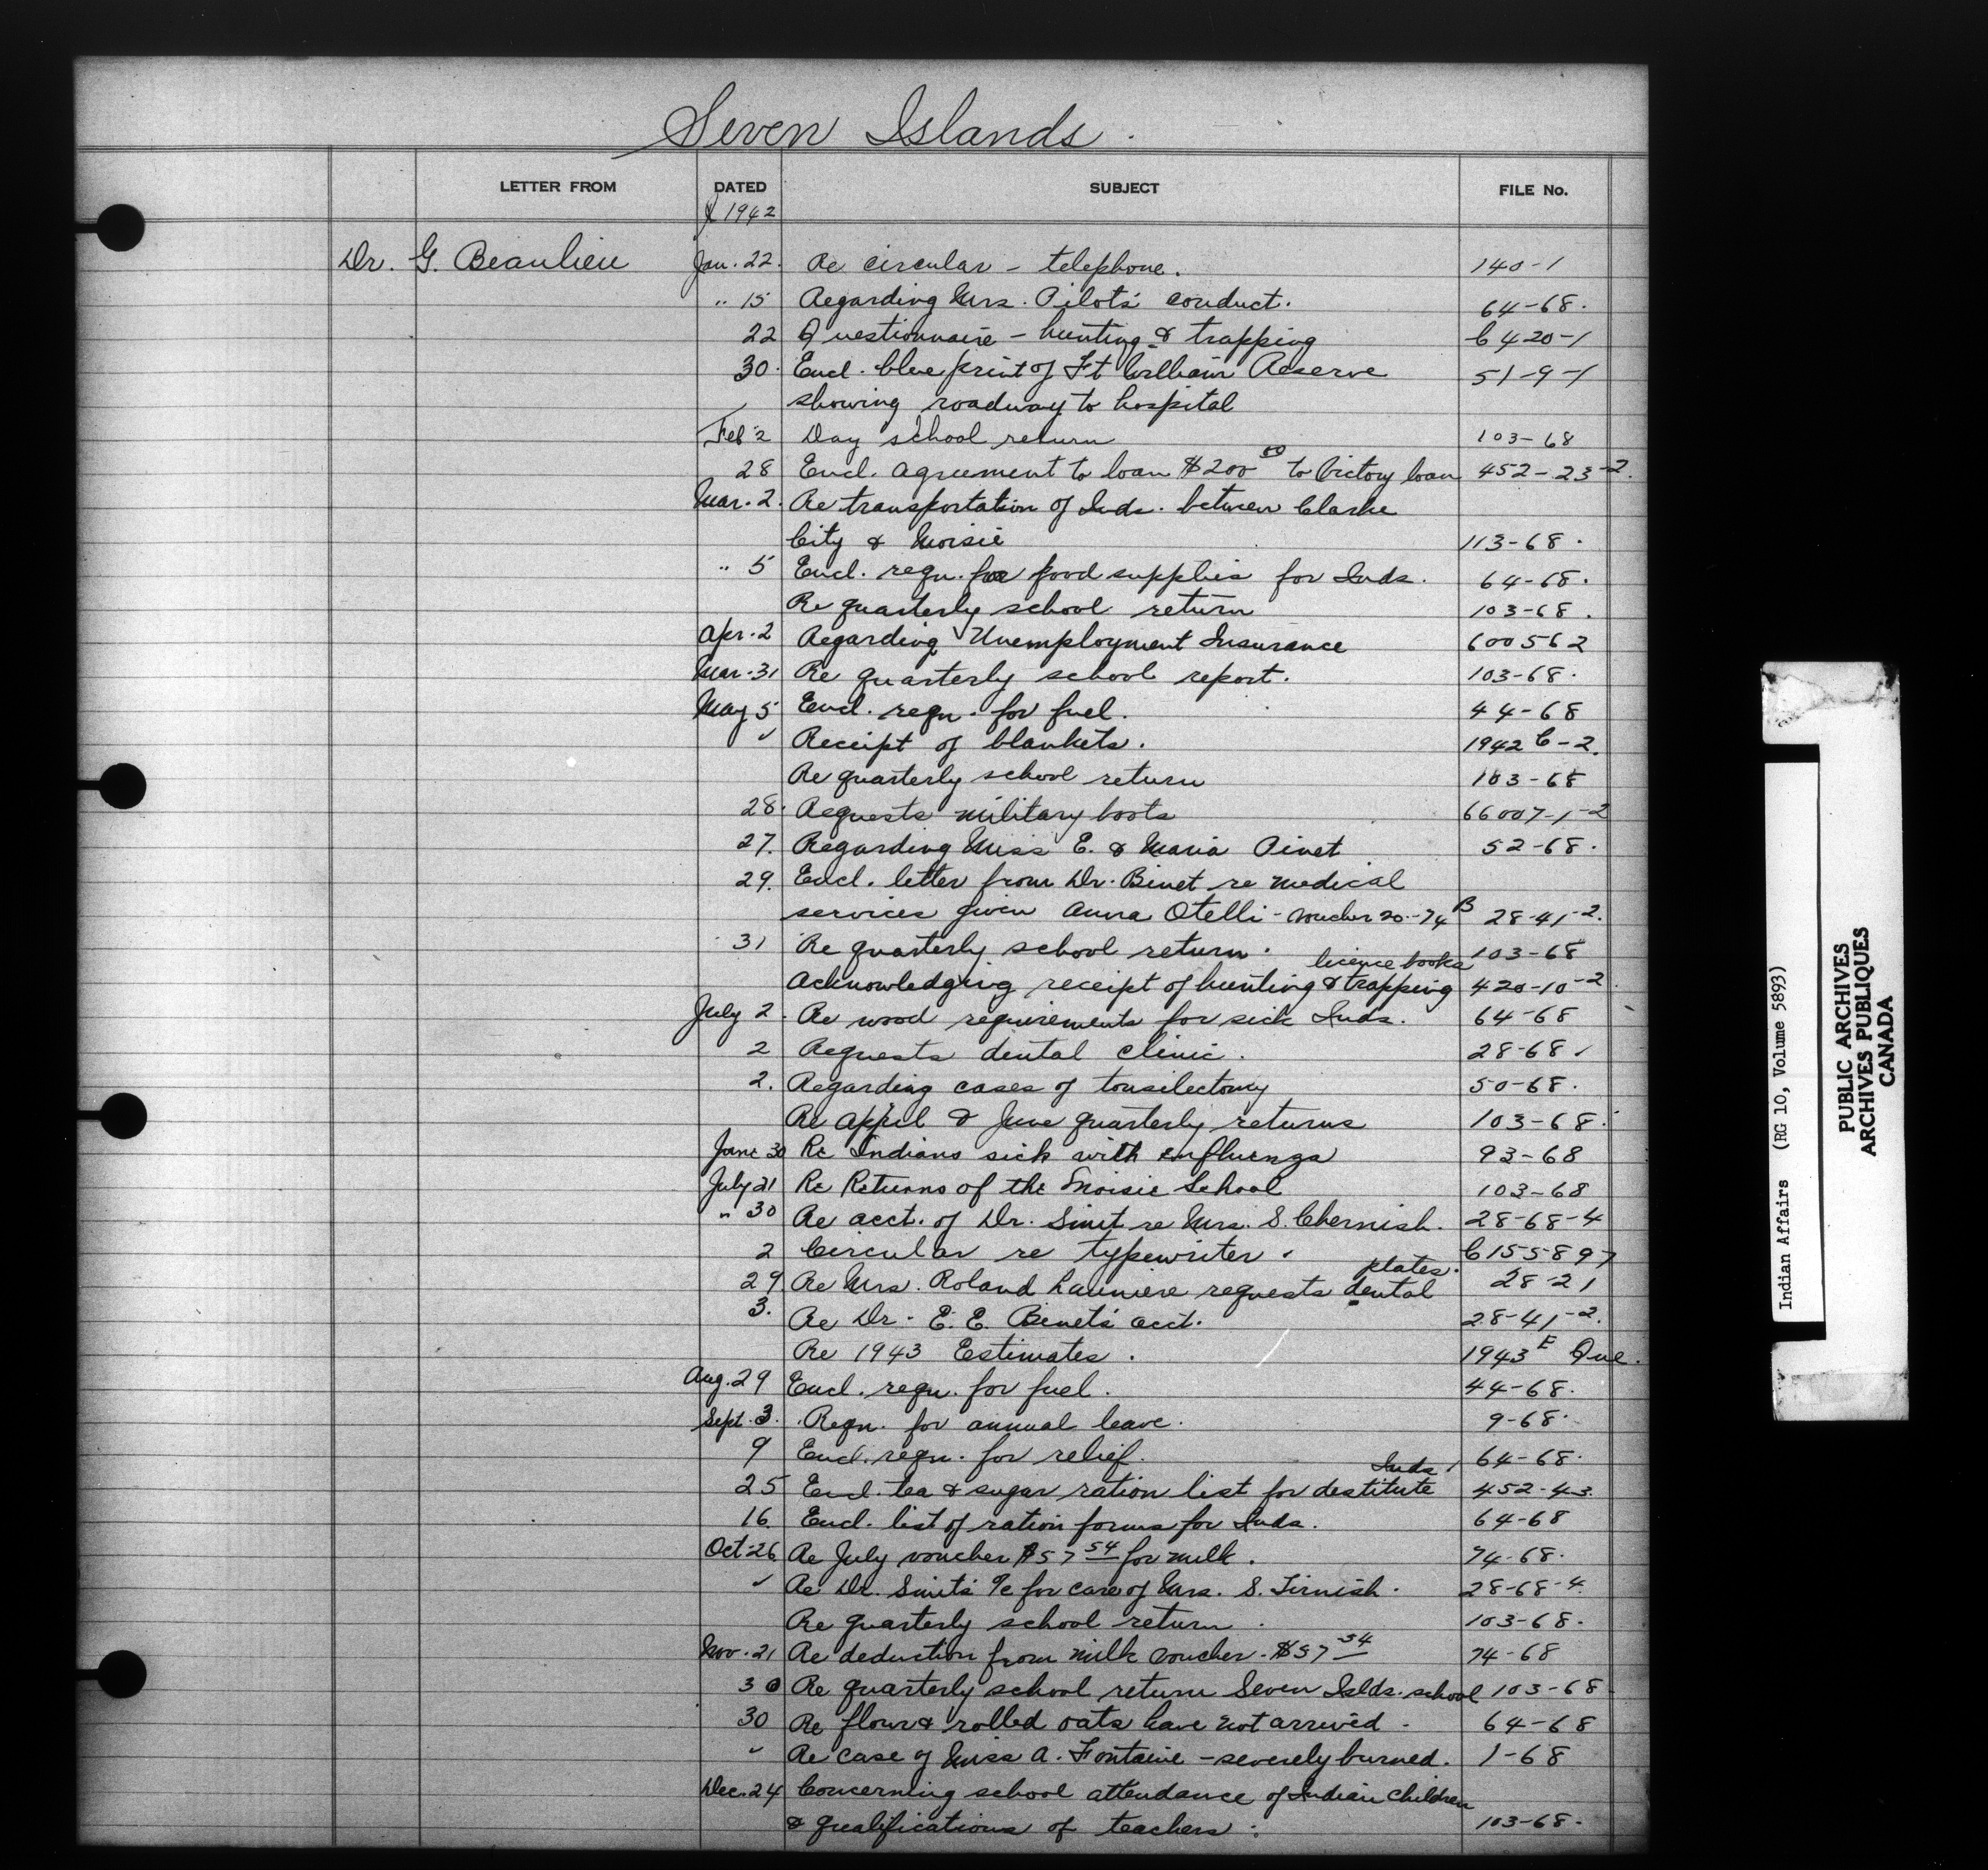 Seven Islands.
LETTER FROM DATED SUBJECT FILE No.
1942
Dr. G. Beaulieu Jan. 22. Re circular - telephone. 140-1
" 15 Regarding Mrs. Pilot's conduct. 64-68.
22 Questionnaire - hunting & trapping C 420-1
30. Encl. blue print of Ft William Reserve 51-9-1
showing roadway to hospital
Feb 2 Day school return 103-68
28 Encl. agreement to loan $200 00 to Victory loan 452-23-2.
Mar. 2. Re transportation of Inds. between Clarke
City & Moisie 113-68.
" 5 Encl. reqn. for food supplies for Inds. 64-68.
Re quarterly school return 103-68.
Apr. 2 Regarding Unemployment Insurance 600562
Mar. 31 Re quarterly school report. 103-68.
May 5 Encl. reqn. for fuel. 44-68
" Receipt of blankets. 1942 C-2.
Re quarterly school return 103-68
28. Requests military boots 66007-1-2
27. Regarding Miss E. & Maria Pinet 52-68.
29. Encl. letter from Dr. Binet re medical
services given Anna Otelli - voucher 20-74 B 28-41-2.
31 Re quarterly school return. 103-68
licence books
Acknowledging receipt of hunting & trapping 420-10-2.
July 2. Re wood requirements for sick Inds. 64-68
2 Requests dental clinic. 28-68
2. Regarding cases of tonsilectomy 50-68.
Re April & June quarterly returns 103-68.
June 30 Re Indians sick with influenza 93-68
July 21 Re Returns of the Moisie School 103-68
" 30 Re acct. of Dr. Smit re Mrs. S. Chernish. 28-68-4
2 Circular re typewriter. C 155897
plates.
29. Re Mrs. Roland Launiere requests dental 28-21
3. Re Dr. E. E. Binet's acct. 28-41-2.
Re 1943 Estimates. 1943 E Que.
Aug. 29 Encl. reqn. for fuel. 44-68.
Sept. 3. Reqn. for annual leave. 9-68.
9 Encl. reqn. for relief. 64-68.
Inds.
25 Encl. tea & sugar ration list for destitute 452-43.
16. Encl. list of ration forms for Inds. 64-68
Oct. 26 Re July voucher $57 54 for milk. 74-68.
" Re Dr. Smit's a/c for care of Mrs. S. Tirnish. 28-68-4.
Re quarterly school return. 103-68.
Nov. 21 Re deduction from milk voucher. $57 54 74-68
30 Re quarterly school return Seven Islds. school 103-68
30 Re flour & rolled oats have not arrived. 64-68
" Re case of Miss A. Fontaine - severely burned. 1-68
Dec. 24 Concerning school attendance of Indian children
& qualifications of teachers. 103-68.
Indian Affairs (RG 10, Volume 5893)
PUBLIC ARCHIVES
ARCHIVES PUBLIQUES
CANADA